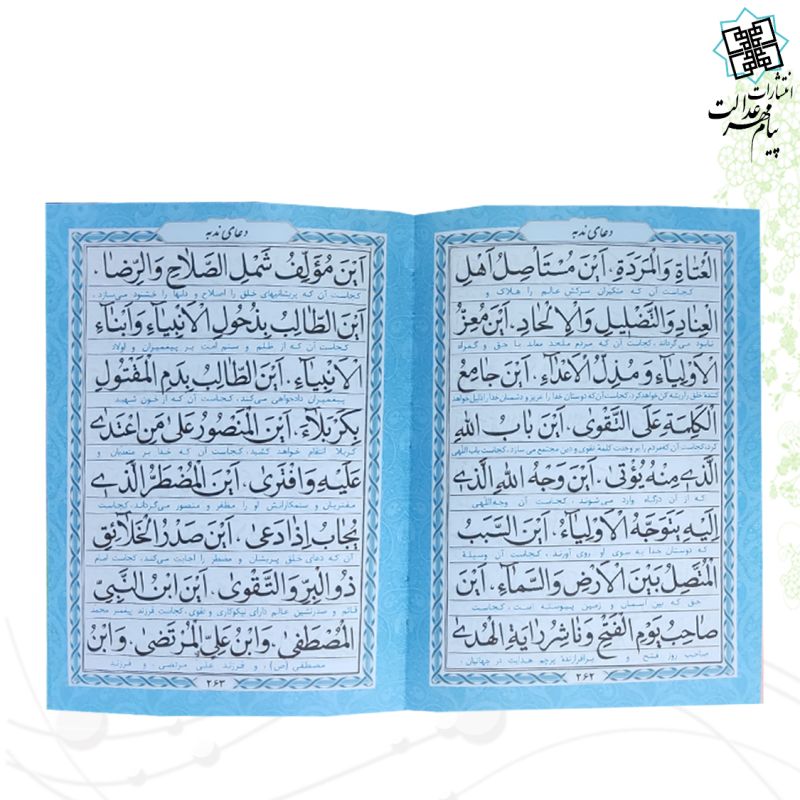 انتشارات
پیام مهر عدالت
دعای ندبه
العُتاةِ وَالمَرَدَةِ، اَینَ مُستَاصِلُ اَهلِ
کجاست آن که متکبران سرکش عالم را هلاک و
العِنادِ وَالتَّضلیلِ وَالاِلحادِ، اَینَ مُعِزُّ
نابود می‌گرداند، کجاست آن که مردم ملحد معاند با حق و گمراه
الاَولِیاءِ وَ مُذِلُّ الاَعداءِ، اَینَ جامِعُ
کننده خلق را ریشه کن خواهد کرد، کجاست آن که دوستان خدا را عزیز و دشمنان خدا را ذلیل خواهد
الکَلِمَةِ عَلَی التَّقوی، اَینَ بابُ اللهِ
کرد، کجاست آن که مردم را بر وحدت کلمهٔ تقوی و دین مجتمع می سازد، کجاست باب اللهی
الَّذی مِنهُ یُؤتی، اَینَ وَجهُ اللهِ الَّذی
که از آن درگاه وارد می‌شوند، کجاست آن وجه‌اللهی
اِلَیهِ یَتَوَجَّهُ الاَولِیاءُ، اَینَ السَّبَبُ
که دوستان خدا به سوی او روی آورند، کجاست آن وسیلهٔ
المُتَّصِلُ بَینَ الاَرضِ وَالسَّماءِ، اَینَ
حق که بین آسمان و زمین پیوسته است، کجاست
صاحِبُ یَومِ الفَتحِ وَ ناشِرُ رایَةِ الهُدی
صاحب روز فتح و برافرازندهٔ پرچم هدایت در جهانیان،
۲۶۲
دعای ندبه
اَینَ مُؤَلِّفُ شَملِ الصَّلاحِ وَالرِّضا،
کجاست آن که پریشانیهای خلق را اصلاح و دلها را خشنود می‌سازد،
اَینَ الطّالِبُ بِذُحولِ الاَنبِیاءِ وَ اَبناءِ
کجاست آن که از ظلم و ستم امت بر پیغمبران و اولاد
الاَنبِیاءِ، اَینَ الطّالِبُ بِدَمِ المَقتولِ
پیغمبران دادخواهی می‌کند، کجاست آن که از خون شهید
بِکَربَلاءَ، اَینَ المَنصورُ عَلی مَنِ اعتَدی
کربلا انتقام خواهد کشید، کجاست آن که خدا بر متعدیان و
عَلَیهِ وَافتَری، اَینَ المُضطَرُّ الَّذی
مفتریان و ستمکارانش او را مظفر و منصور می‌گرداند، کجاست
یُجابُ اِذا دَعی، اَینَ صَدرُ الخَلائِقِ
آن که دعای خلق پریشان و مضطر را اجابت می‌کند، کجاست امام
ذُو البِرِّ وَالتَّقوی، اَینَ ابنُ النَّبِیِّ
قائم و صدرنشین عالم دارای نیکوکاری و تقوی، کجاست فرزند پیغمبر محمد
المُصطَفی، وَابنُ عَلِیٍّ المُرتَضی، وَابنُ
مصطفی (ص)، و فرزند علی مرتضی، و فرزند
۲۶۳